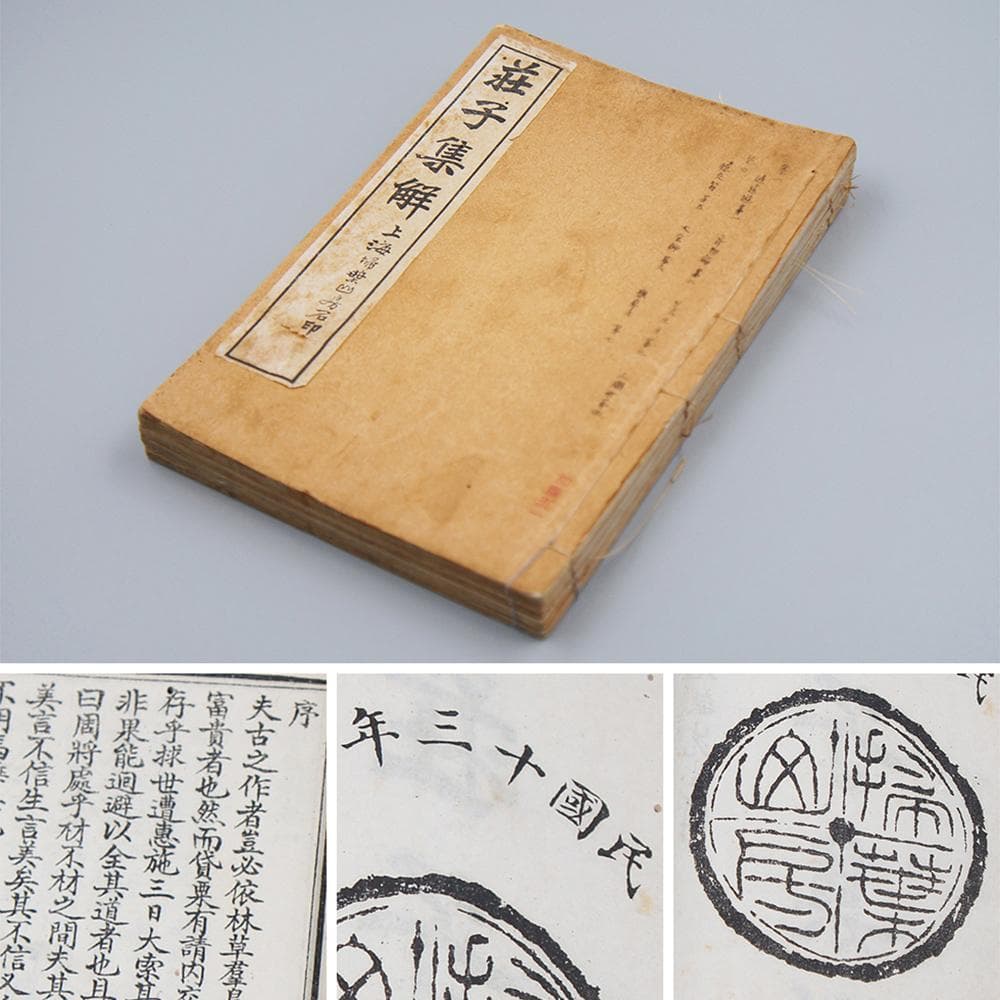 莊子集解
上海掃葉山房石印
序
夫古之作者豈必依林草羣
富貴者也然而貸粟有請內
行乎捄世遭惠施三日大索其
非果能迴避以全其道者也且
曰周將處乎材不材之間夫其
美言不信生言美矣其不信又
民國十三年
掃葉
山房